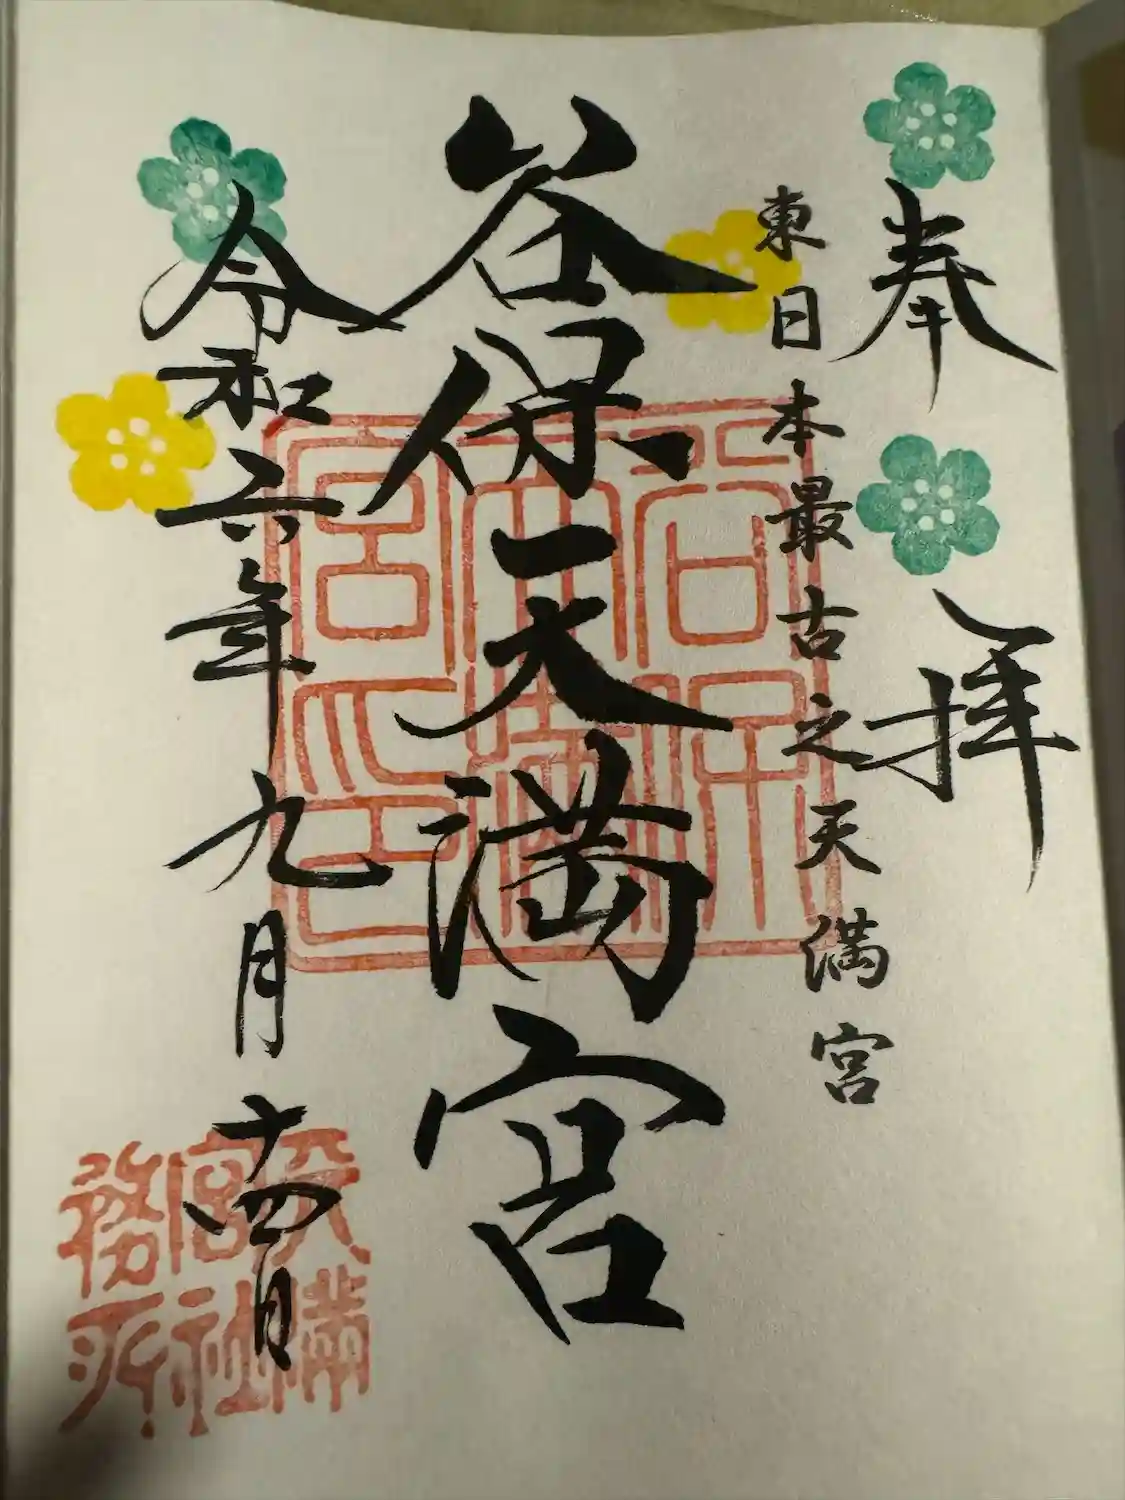 奉拝
東日本最古之天満宮
谷保天満宮
谷保天満宮之印
令和六年九月十四日
天満宮社務所